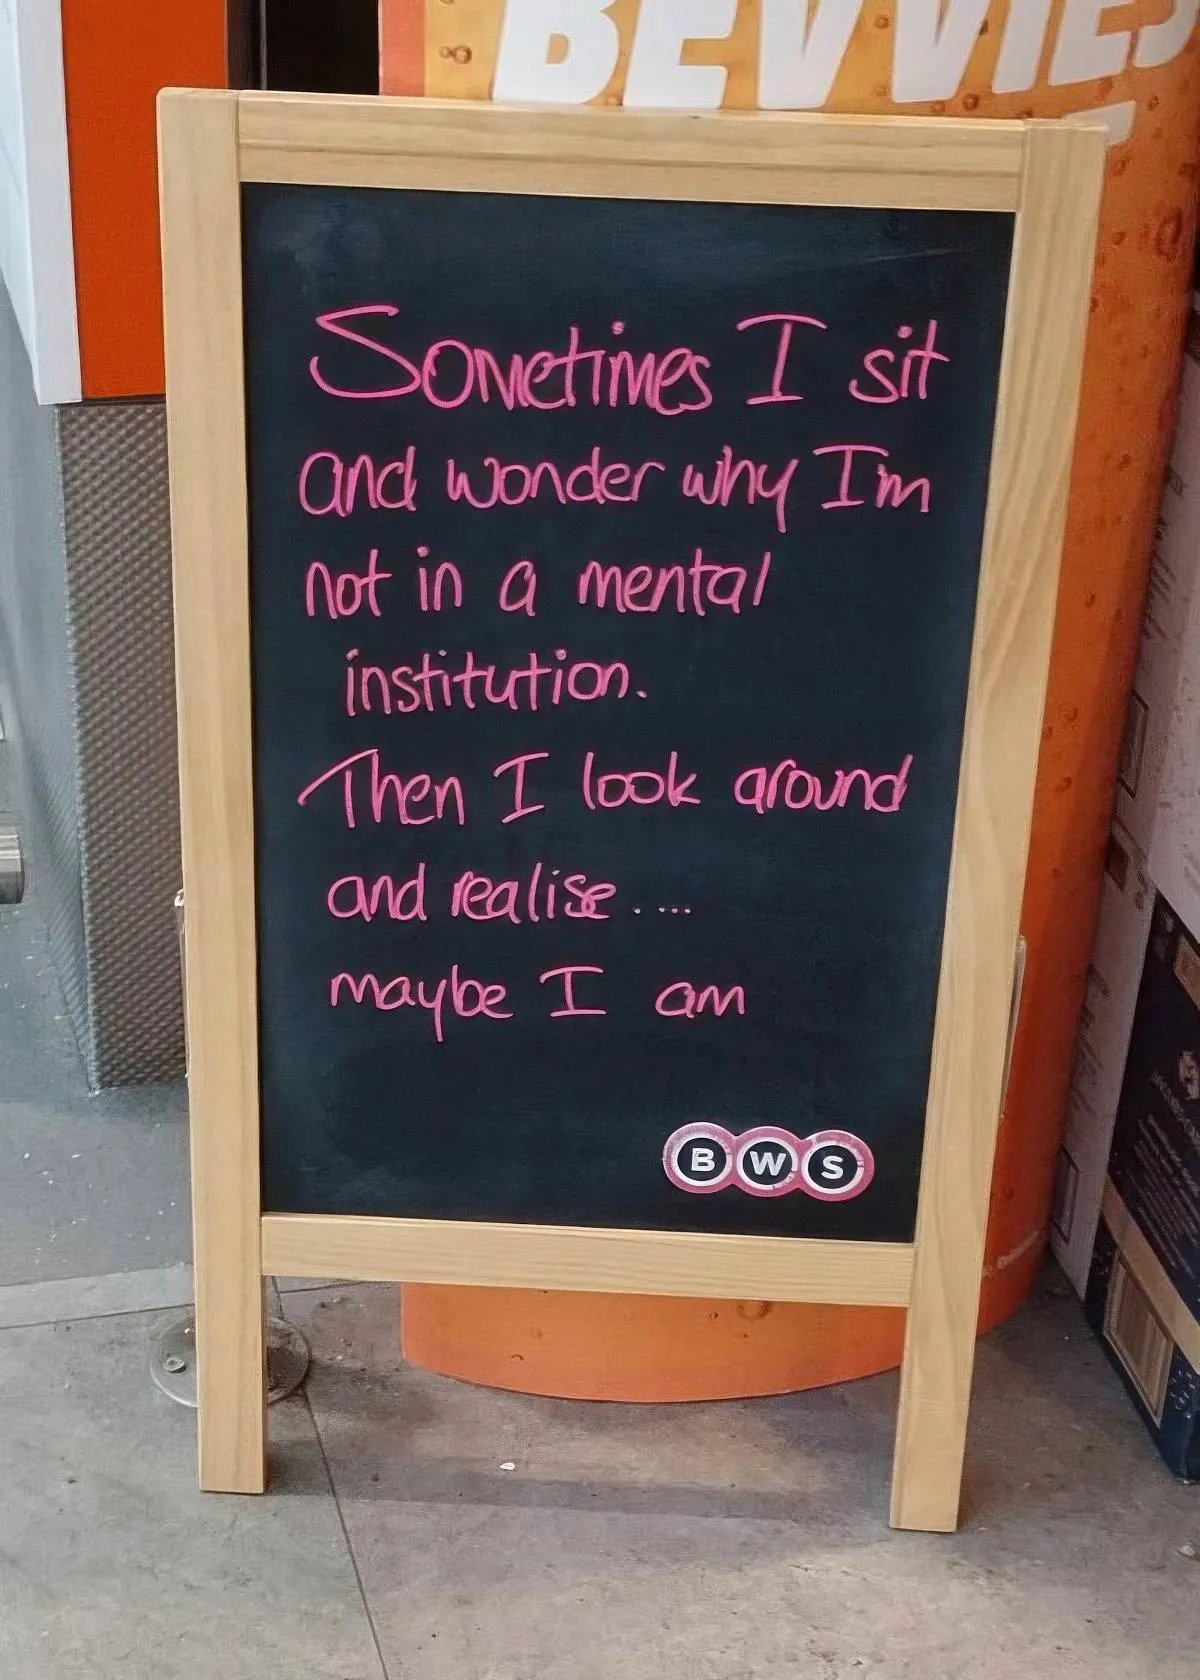 BEVVIES
Sometimes I sit
and wonder why I'm
not in a mental
institution.
Then I look around
and realise ....
maybe I am
BWS